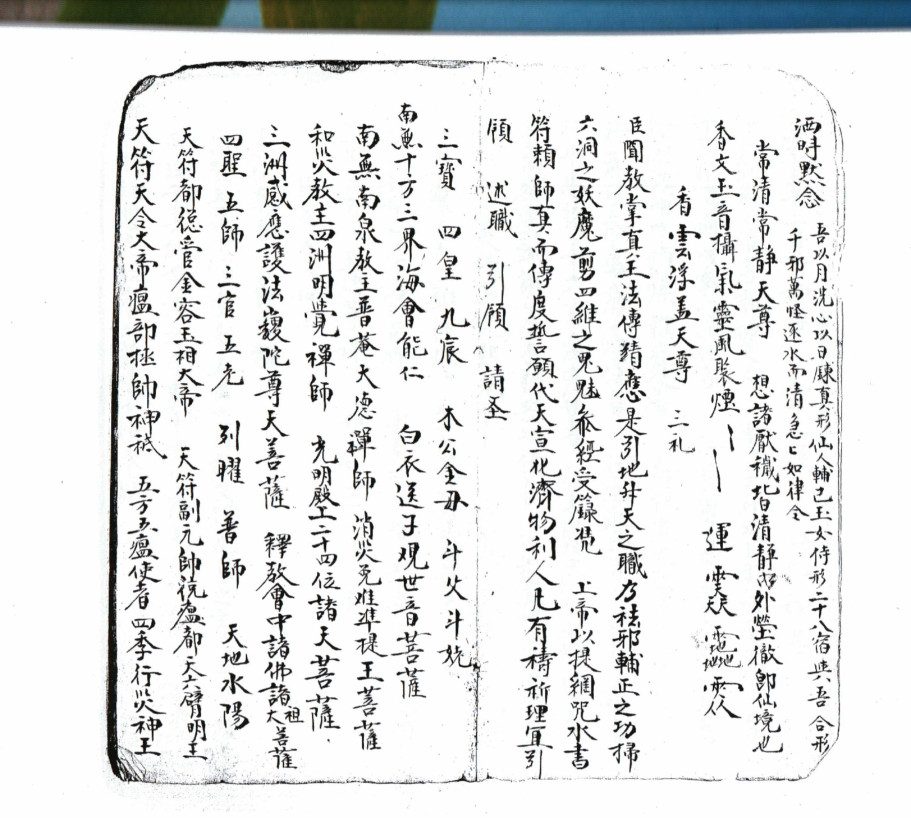 洒時黙念 吾以月洗心以日鍊真形仙人輔己玉女侍形二十八宿與吾合形
千邪萬怪逐水而清急々如律令
常清常静天尊 想諸厭穢皆清静内外瑩徹即仙境也
香文玉音攝炁靈風聚煙 運
香雲浮盖天尊 三礼
臣聞教掌真主法傳猜應是引地升天之職乃祛邪輔正之功掃
六洞之妖魔剪四維之鬼魅叅經受籙凭 上帝以提綱咒水書
符頼師真而傳度誓願代天宣化濟物利人凡有禱祈理宜引
領 述職 引願 請圣
三寳 四皇 九宸 木公金母 斗父斗姥
南無十方三界海會能仁 白衣送子观世音菩薩
南無南泉教主普菴大德禪師 消災免难準提王菩薩
和災教主四洲明覺禪師 光明殿上二十四位諸天菩薩
三洲感應護法韋陀尊天菩薩 釋教會中諸佛諸大祖菩薩
四聖 五師 三官 五老 列曜 普師 天地水陽
天符都總管金容玉相大帝 天符副元帥統瘟都天六臂明王
天符天令大帝瘟部拯帥神祇 五方五瘟使者四季行災神王